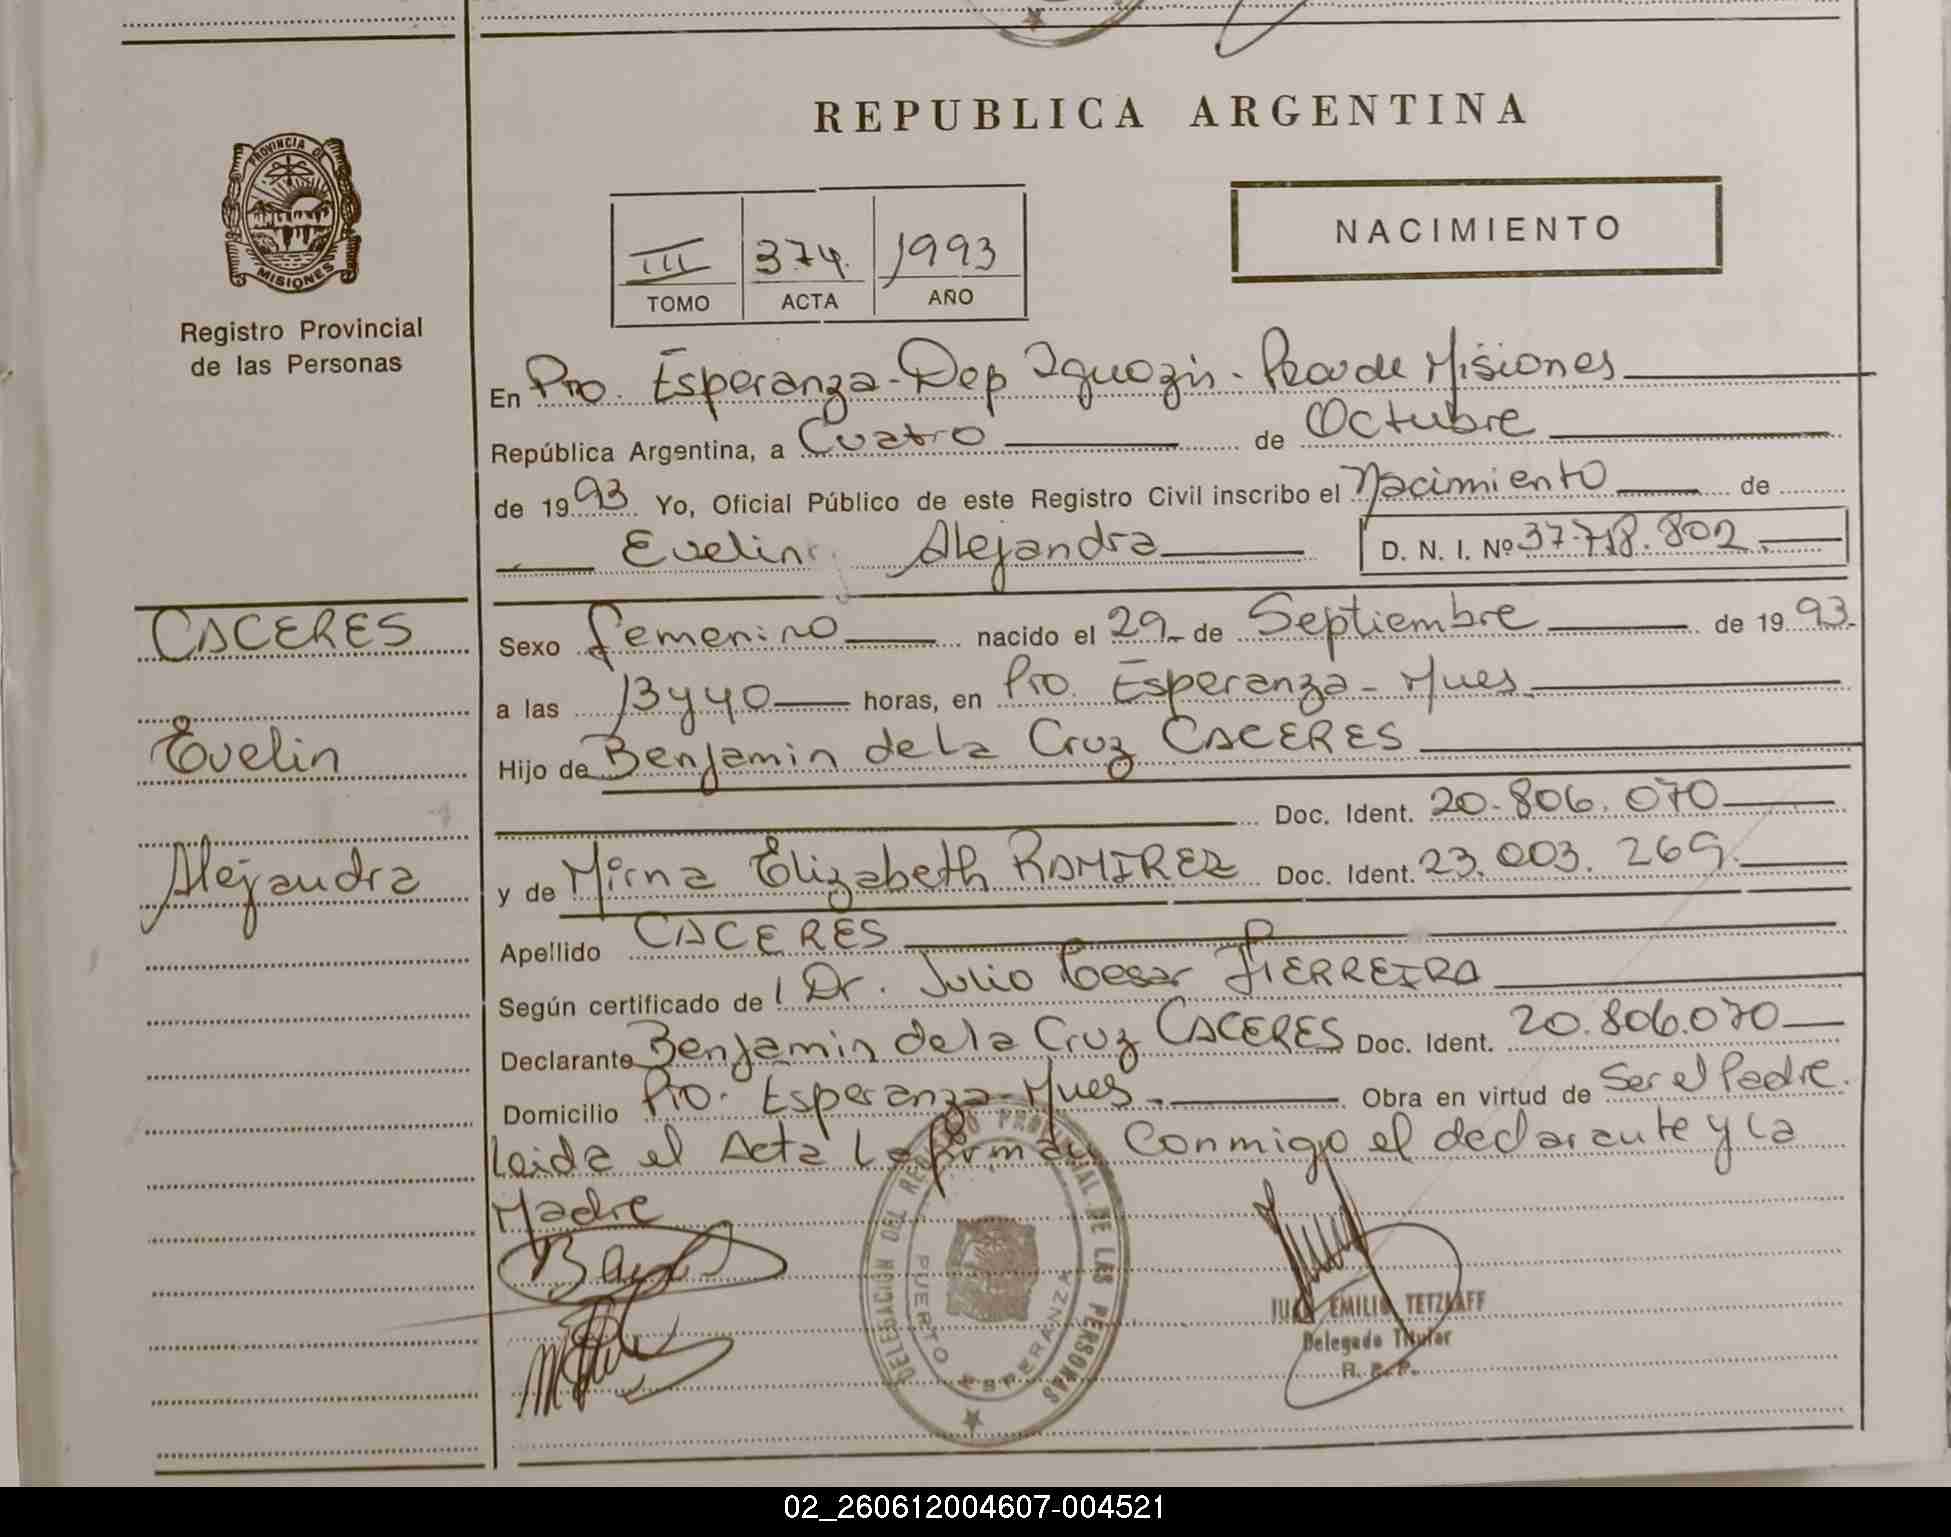 REPUBLICA ARGENTINA
PROVINCIA DE
MISIONES
Registro Provincial
de las Personas
III 374. 1993
TOMO ACTA AÑO
NACIMIENTO
En Pto. Esperanza - Dep Iguazú - Prov de Misiones
República Argentina, a Cuatro de Octubre
de 1993 Yo, Oficial Público de este Registro Civil inscribo el Nacimiento de
Evelin Alejandra D. N. I. Nº 37.718.802
CACERES
Evelin
Alejandra
Sexo femenino nacido el 29 de Septiembre de 1993
a las 13 y 40 horas, en Pto. Esperanza - Mnes
Hijo de Benjamin de la Cruz CACERES
Doc. Ident. 20.806.070
y de Mirna Elizabeth RAMIREZ Doc. Ident. 23.003.269
Apellido CACERES
Según certificado de Dr. Julio Cesar FIERREIRA
Declarante Benjamin de la Cruz CACERES Doc. Ident. 20.806.070
Domicilio Pto. Esperanza - Mnes. Obra en virtud de Ser el Padre.
Leida el Acta la firman Conmigo el declarante y la
Madre
DELEGACION DEL REGISTRO PROVINCIAL DE LAS PERSONAS
PUERTO ESPERANZA
JUAN EMILIO TETZLAFF
Delegado Titular
R. P. P.
02_260612004607-004521